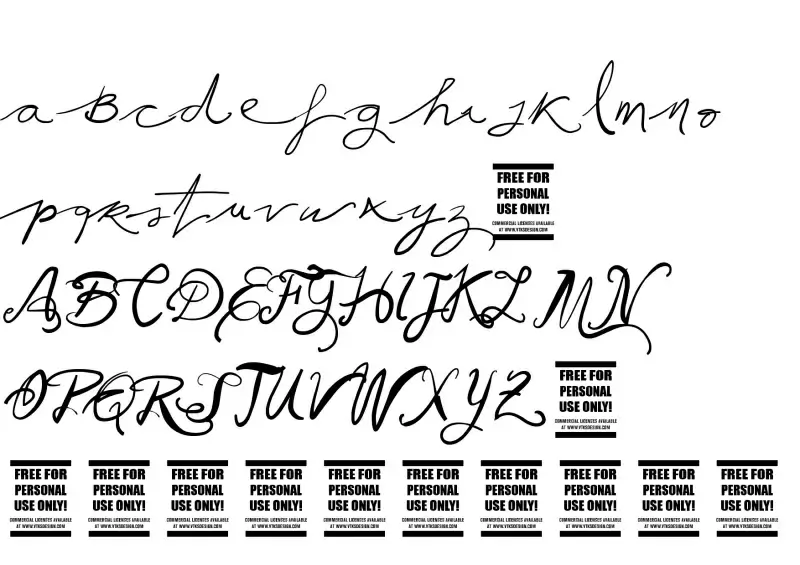 aBcdefghijklmno
pqrstuvwxyz
FREE FOR
PERSONAL
USE ONLY!
COMMERCIAL LICENCES AVAILABLE
AT WWW.VTKSDESIGN.COM
ABCDEFGHIJKLMN
OPQRSTUVWXYZ
FREE FOR
PERSONAL
USE ONLY!
COMMERCIAL LICENCES AVAILABLE
AT WWW.VTKSDESIGN.COM
FREE FOR FREE FOR FREE FOR FREE FOR FREE FOR FREE FOR FREE FOR FREE FOR FREE FOR FREE FOR
PERSONAL PERSONAL PERSONAL PERSONAL PERSONAL PERSONAL PERSONAL PERSONAL PERSONAL PERSONAL
USE ONLY! USE ONLY! USE ONLY! USE ONLY! USE ONLY! USE ONLY! USE ONLY! USE ONLY! USE ONLY! USE ONLY!
COMMERCIAL LICENCES AVAILABLE COMMERCIAL LICENCES AVAILABLE COMMERCIAL LICENCES AVAILABLE COMMERCIAL LICENCES AVAILABLE COMMERCIAL LICENCES AVAILABLE COMMERCIAL LICENCES AVAILABLE COMMERCIAL LICENCES AVAILABLE COMMERCIAL LICENCES AVAILABLE COMMERCIAL LICENCES AVAILABLE COMMERCIAL LICENCES AVAILABLE
AT WWW.VTKSDESIGN.COM AT WWW.VTKSDESIGN.COM AT WWW.VTKSDESIGN.COM AT WWW.VTKSDESIGN.COM AT WWW.VTKSDESIGN.COM AT WWW.VTKSDESIGN.COM AT WWW.VTKSDESIGN.COM AT WWW.VTKSDESIGN.COM AT WWW.VTKSDESIGN.COM AT WWW.VTKSDESIGN.COM